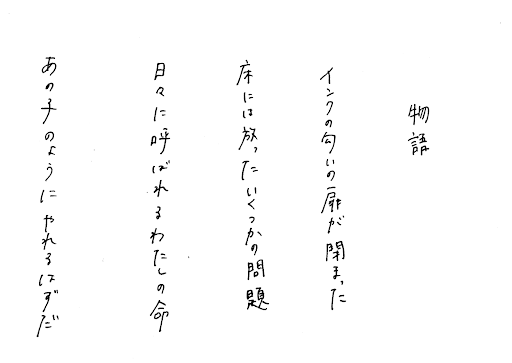 物語
インクの匂いの扉が閉まった
床には放ったいくつかの問題
日々に呼ばれるわたしの命
あの子のようにやれるはずだ